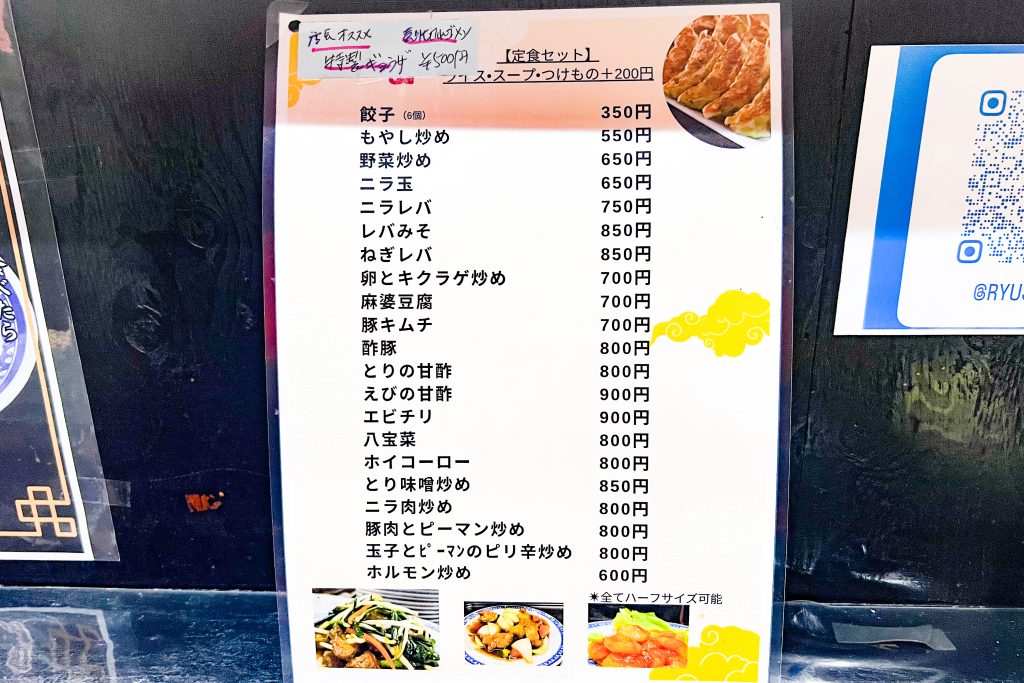 店長オススメ
特製ギョウザ ¥500円
【定食セット】
ライス・スープ・つけもの+200円
餃子(6個) 350円
もやし炒め 550円
野菜炒め 650円
ニラ玉 650円
ニラレバ 750円
レバみそ 850円
ねぎレバ 850円
卵とキクラゲ炒め 700円
麻婆豆腐 700円
豚キムチ 700円
酢豚 800円
とりの甘酢 800円
えびの甘酢 900円
エビチリ 900円
八宝菜 800円
ホイコーロー 800円
とり味噌炒め 850円
ニラ肉炒め 800円
豚肉とピーマン炒め 800円
玉子とﾋﾟｰﾏﾝのピリ辛炒め 800円
ホルモン炒め 600円
✷全てハーフサイズ可能
べたら
@RYU